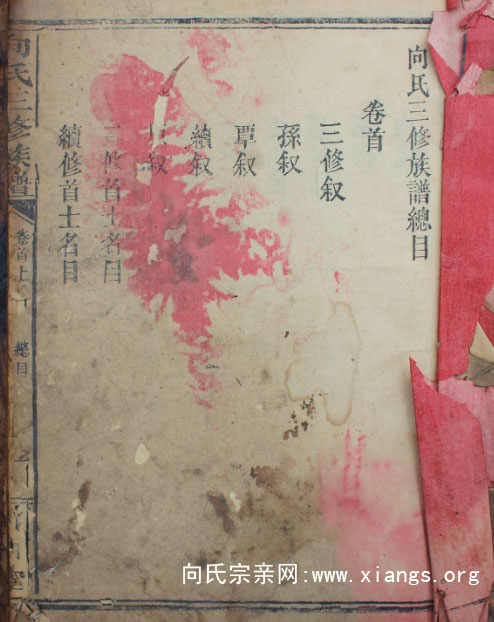 向氏三修族譜總目
卷首
三修叙
孫叙
覃叙
續叙
叙
二修首士名目
續修首士名目
向氏三修族譜
卷首上
總目
向氏宗亲网:www.xiangs.org